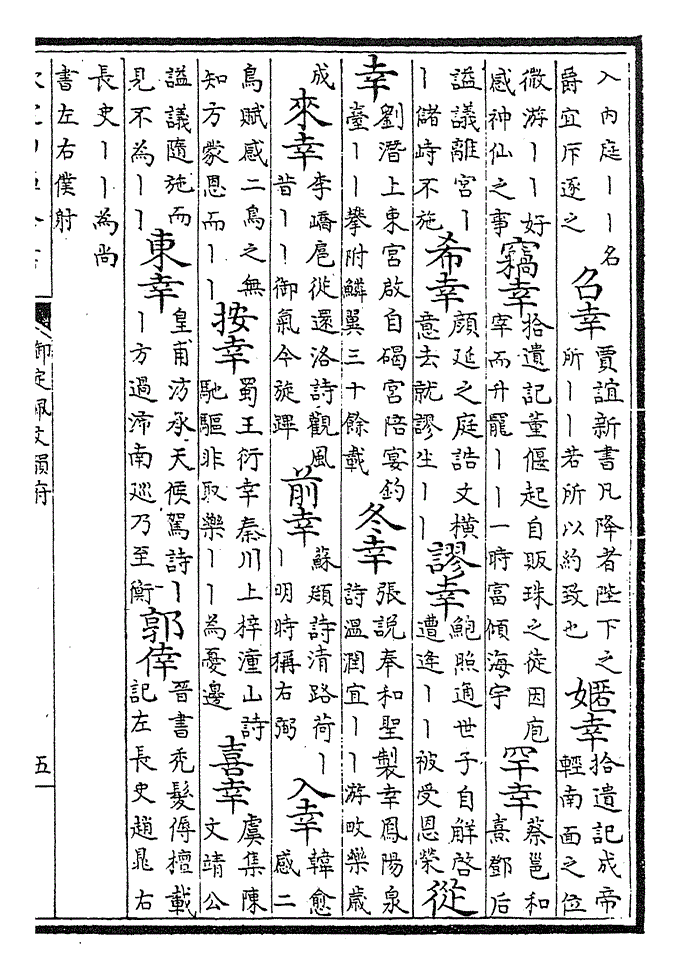 入内庭丨丨名
爵宜斥逐之
召幸
賈誼新書凡降者陛下之
所丨丨若所以約致也
嫟幸
拾遺記成帝
輕南面之位
微游丨丨好
感神仙之事
竊幸
拾遺記董偃起自販珠之徒因庖
宰而升寵丨丨一時富傾海宇
罕幸
蔡邕和
熹鄧后
謚議離宮丨
丨儲峙不施
希幸
顔延之庭誥文橫
意去就謬生丨丨
謬幸
鮑照通世子自解啓
遭逢丨丨被受恩榮
從
幸
劉潛上東宮啟自碣宮陪宴釣
臺丨丨攀附鱗翼三十餘載
冬幸
張說奉和聖製幸鳳陽泉
詩温潤宜丨丨游畋樂歲
成
來幸
李嶠扈從還洛詩觀風
昔丨丨御氣今旋蹕
前幸
蘇頲詩清路荷丨
丨明時稱右弼
入幸
韓愈
感二
鳥賦感二鳥之無
知方蒙恩而丨丨
按幸
蜀王衍幸秦川上梓潼山詩
馳驅非取樂丨丨為憂邊
喜幸
虞集陳
文靖公
謚議隨施而
見不為丨丨
東幸
皇甫汸承天候駕詩丨
丨方過沛南巡乃至衡
郭倖
晉書禿髮傉檀載
記左長史趙晁右
長史丨丨為尚
書左右僕射
御定佩文韻府
五